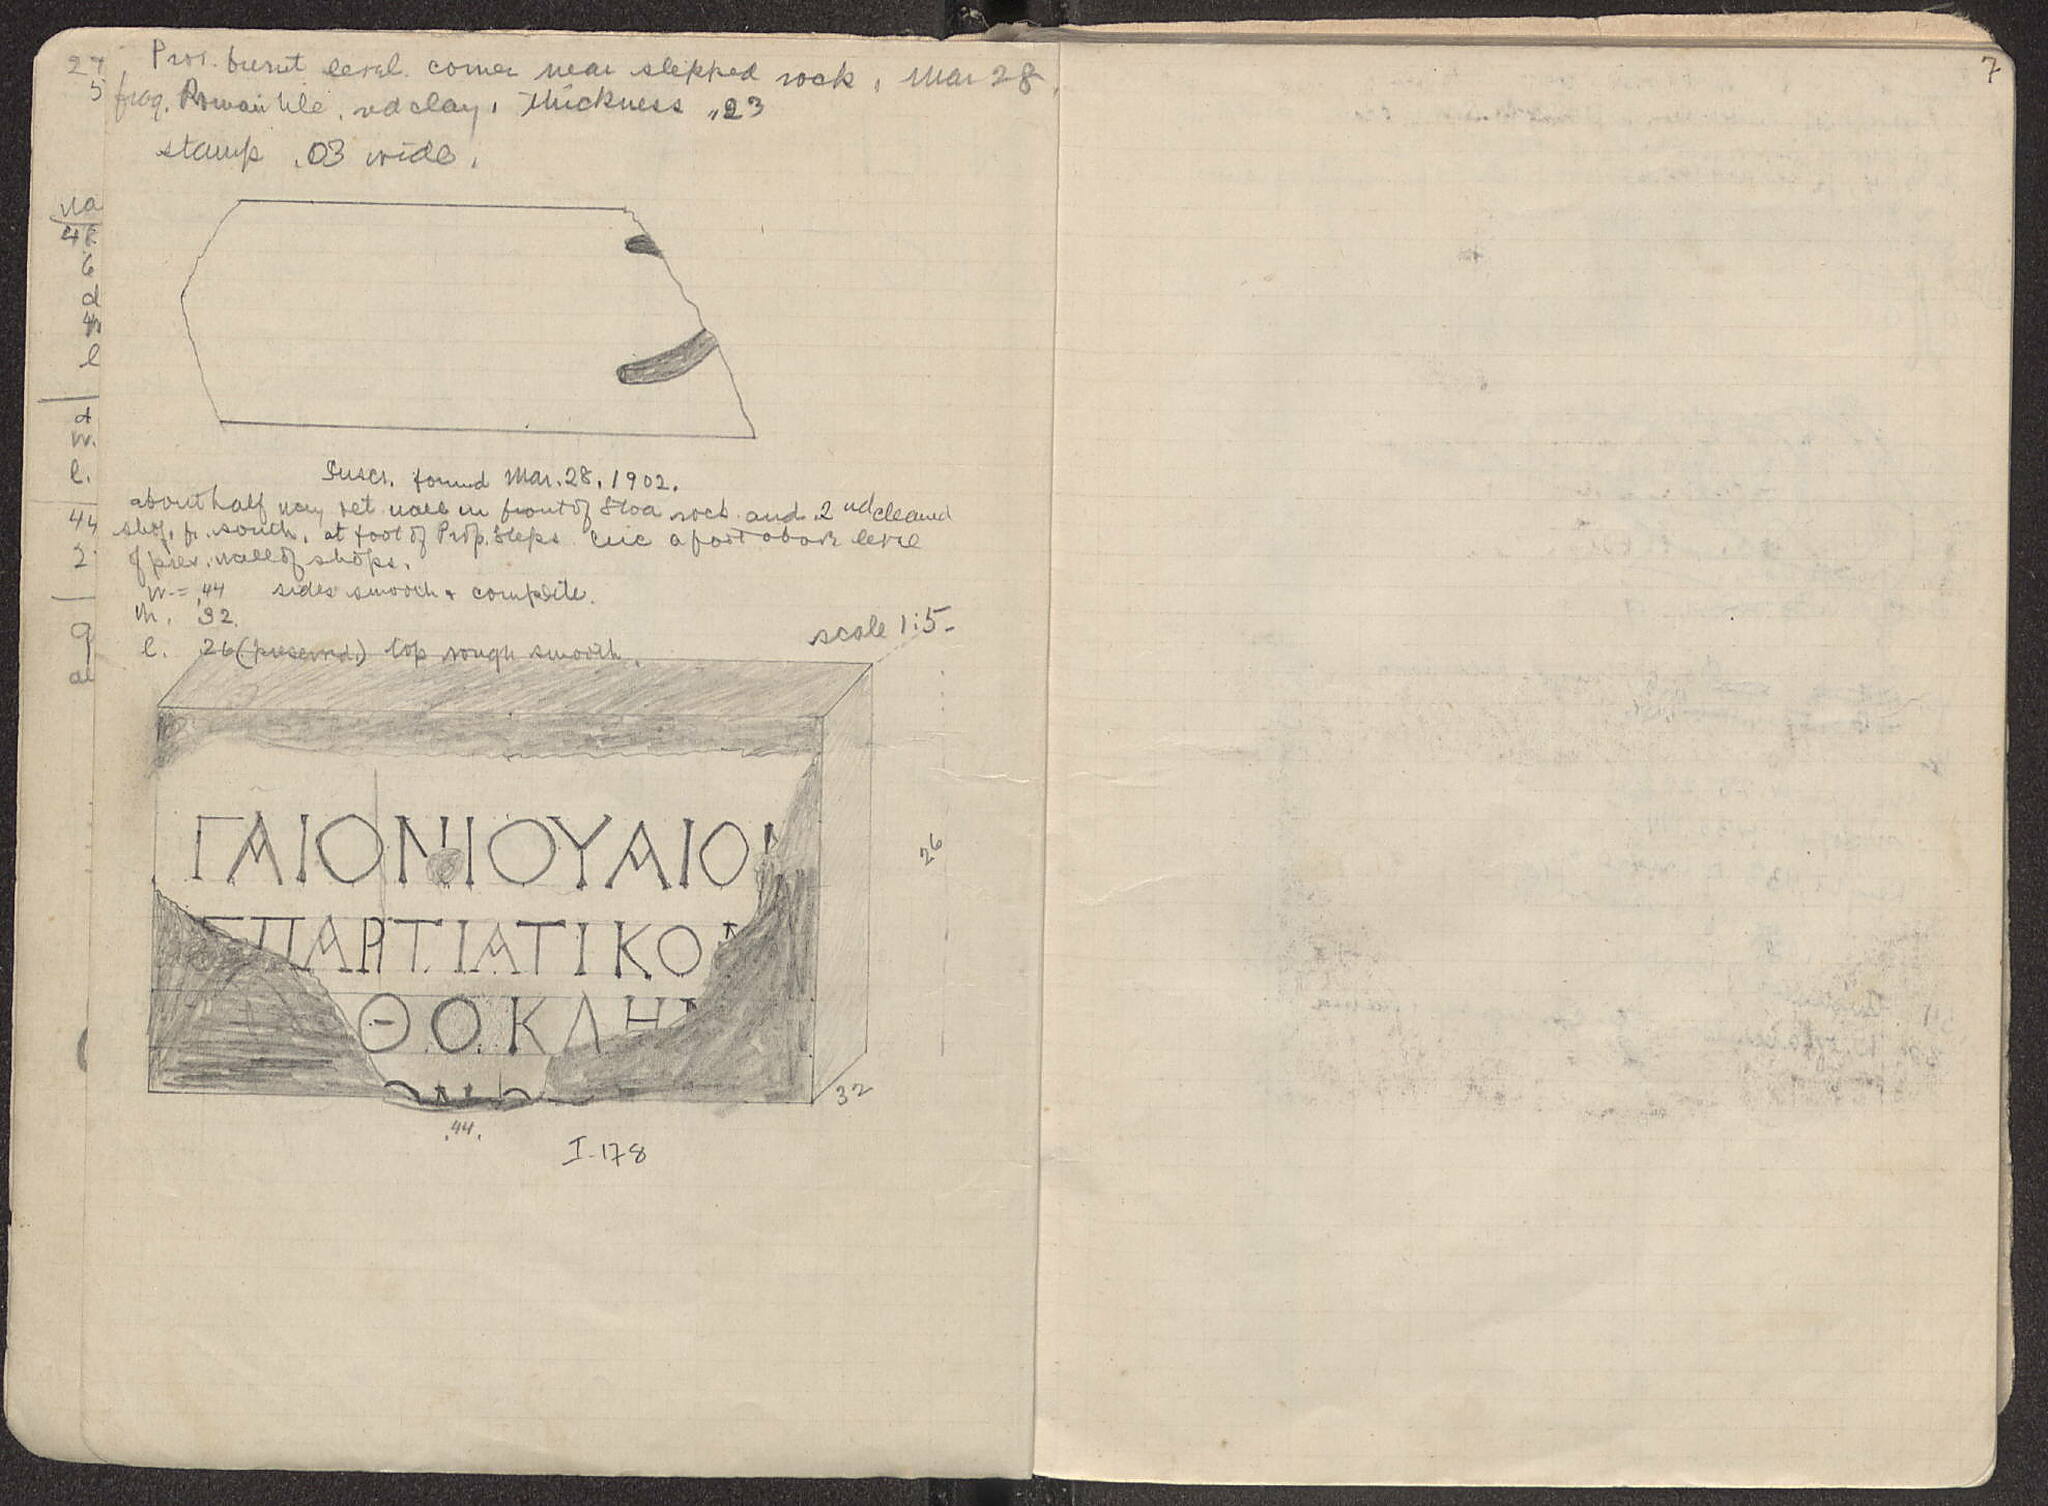 Prov. burnt level. corner near stepped rock, Mar 28.
frag. Roman tile, red clay, thickness .23
stamp .03 wide.
Inscr. found Mar. 28, 1902.
about half way bet. wall in front of Stoa rock and 2nd cleaned
shop fr. south, at foot of Prop. Steps a foot above level
of prev. wall of shops.
w = .44 sides smooth & complete.
th. 32.
l. 26 (preserved) top rough smooth.
scale 1:5
ΓΑΙΟΝΙΟΥΛΙΟΝ
ΣΠΑΡΤΙΑΤΙΚΟΝ
ΘΟΚΛΗ
26
32
.44.
I-178
7